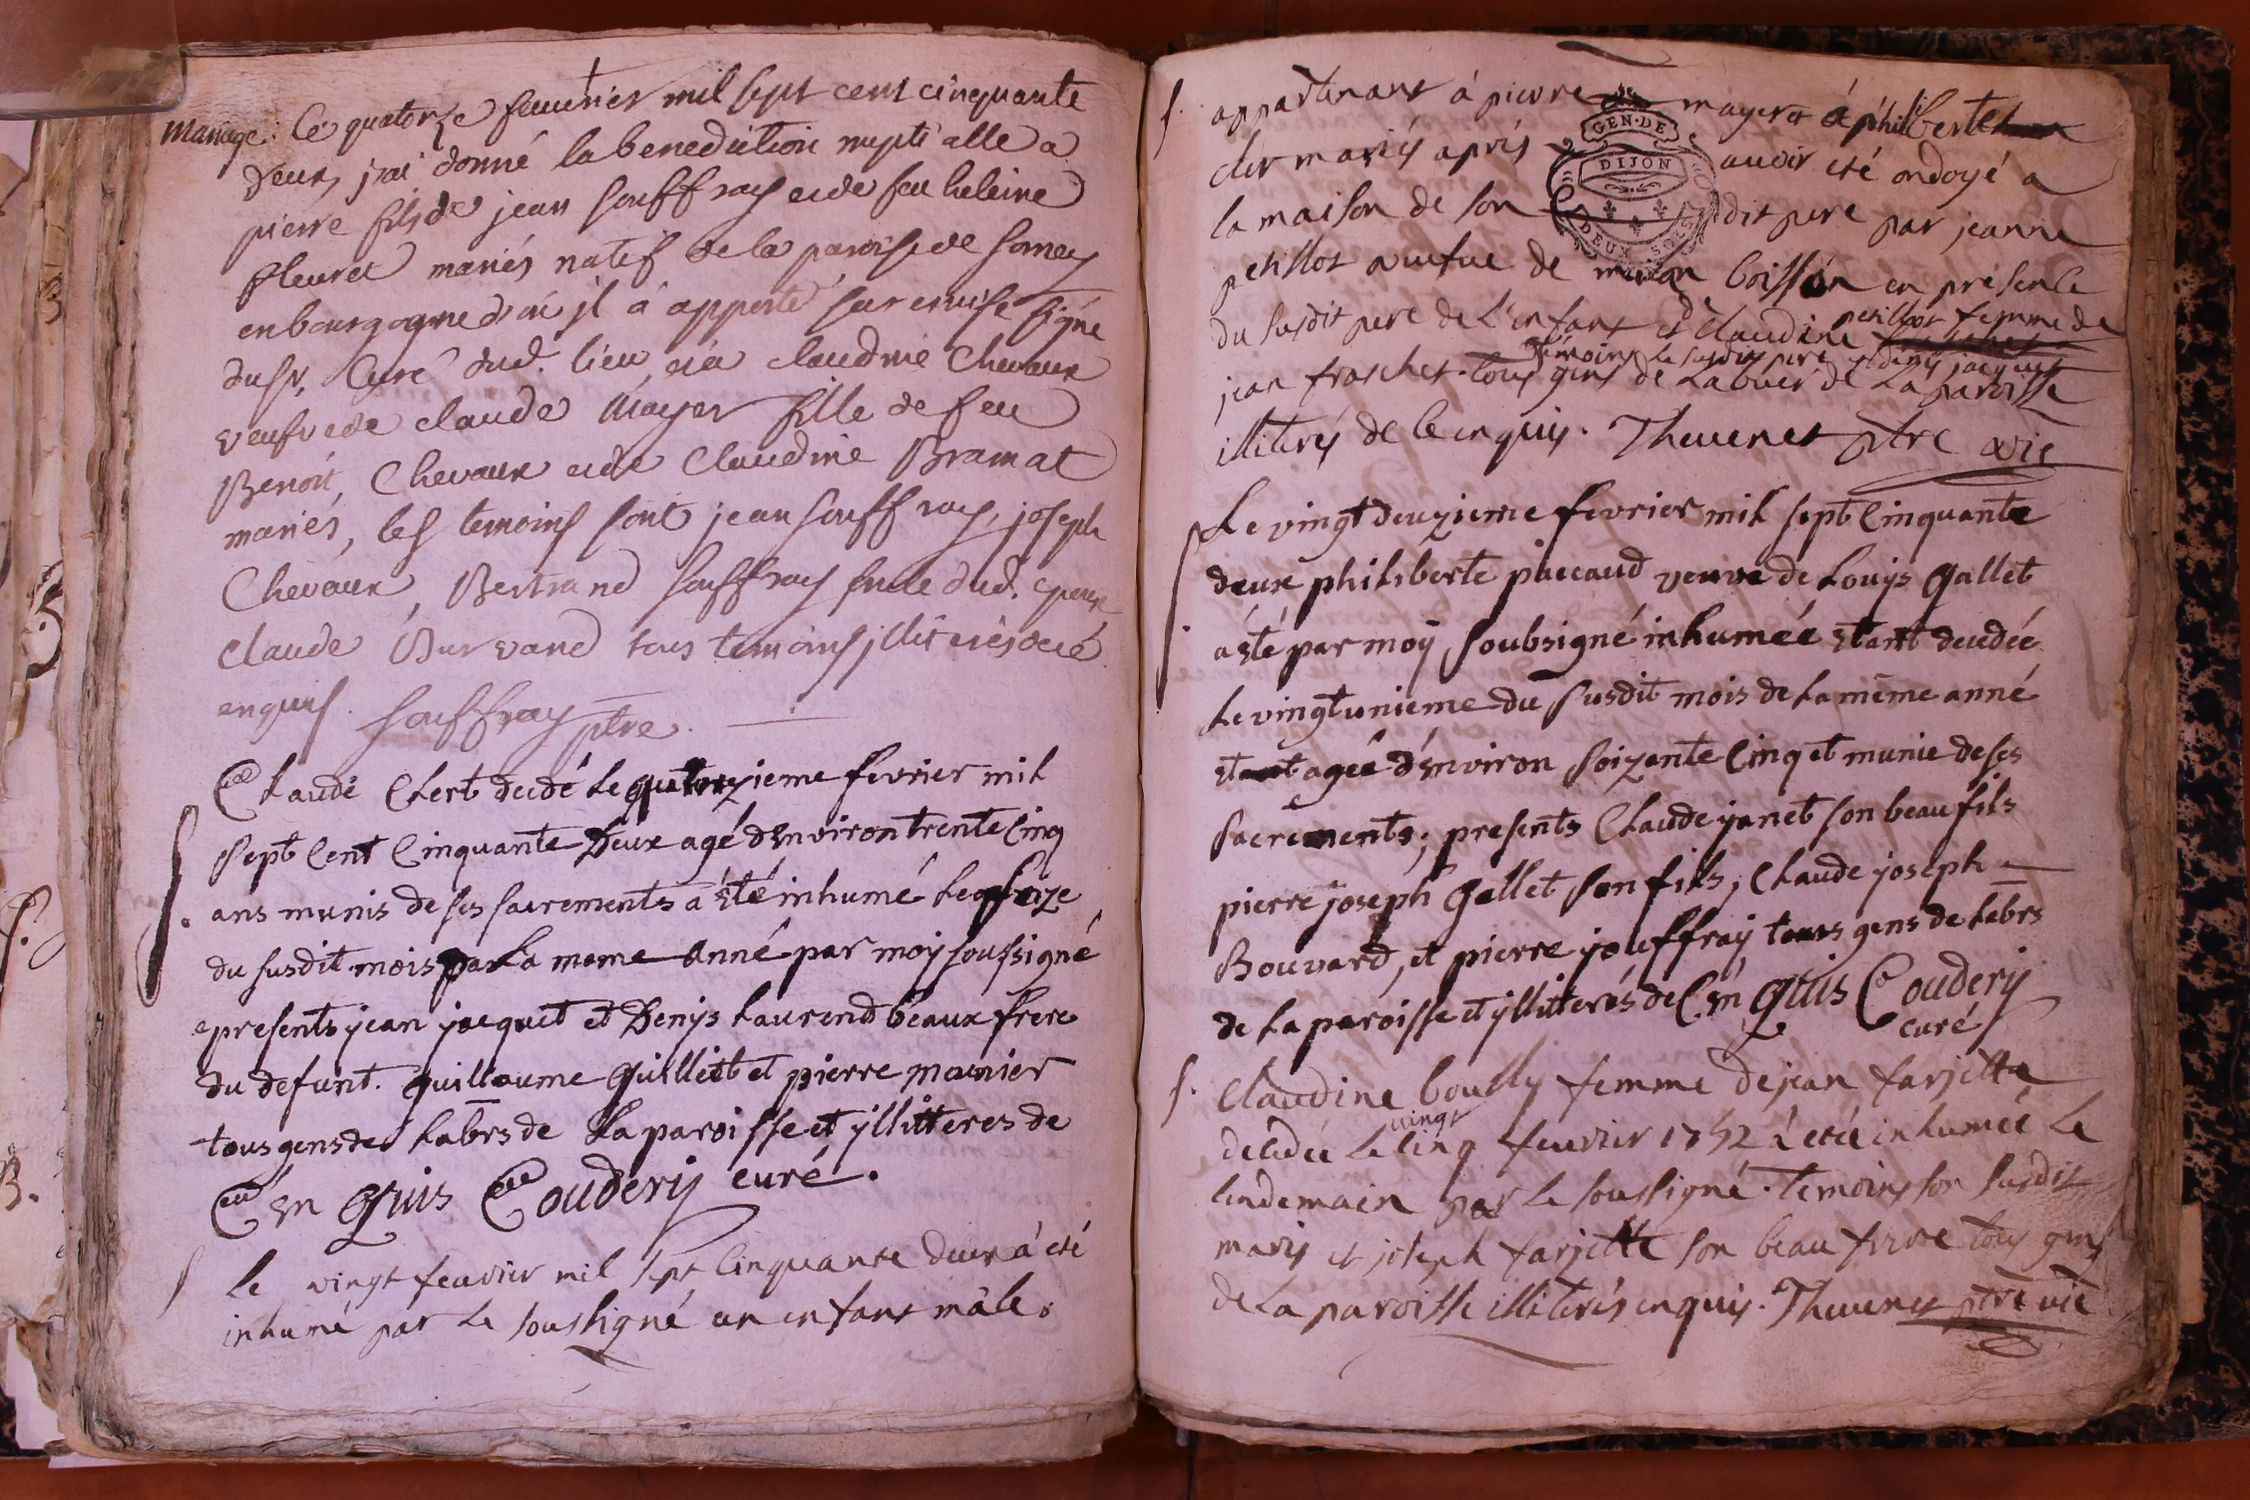 mariage. Ce quatorze feuvrier mil sept cent cinquante
deux, j'ai donné la benediction nuptialle a
pierre fils de jean souffray et de feu heleine
fleuret mariés natif de la paroisse de
en bourgogne d'où il à apporté sa remise signé
du sr. Curé dud. lieu, et à claudine Chevaux
veufve de claude Mayer fille de feu
Benoit, Chevaux et de Claudine Bramat
mariés, les temoins sont jean souffray, joseph
Chevaux, Bertrand souffray dud. epoux
claude Burvand tous temoins illiterés de ce
enquis. souffray ptre.
Claude Clert decedé le quatorzieme fevrier mil
sept Cent Cinquante Deux agé d'environ trente Cinq
ans munis de ses sacrements a été inhumé le seize
du susdit mois par la meme anné par moy soussigné
presents jean jacquet et Denys Laurend beaux frere
du defunt. guillaume guillet et pierre monier
tous gens de Labrs de La paroisse et yllitteres de
Ce en Quis Coudery curé.
le vingt feuvrier mil sept cinquante deux à eté
inhumé par le soussigné un enfant mâle.
appartenant à pierre mayer et à philiberte
cler mariés après avoir eté ondoyé a
la maison de son susdit pere par jeanne
petillot veufue de boisson en présence
du susdit pere de l'enfant et de claudine petillot femme de
jean fraschet. témoins le susdit pere et denis jacquet
tous gens de Labeur de La paroisse
illiterés de ce enquis. Theuenet ptre vic
Le vingt deuzieme fevrier mil sept Cinquante
deux philiberte paccaud veuve de Louys gallet
a été par moy soubsigné inhumée étant decedée
Le vingt unieme du susdit mois de La même anné
etant agée d'environ soizente Cinq et munie de ses
sacrements; presents Claude janet son beau fils
pierre joseph gallet son fils, Claude joseph
Bouvard, et pierre jouffray tous gens de Labrs
de La paroisse et yllitterés de C'en Quis Coudery
curé
Claudine boully femme de jean farjette
decedée le vingt cinq feuvrier 1752 à eté inhumée le
lendemain par le soussigné. temoins son susdit
mary et joseph farjette son beau frere tous gens
de La paroisse illiterés enquis. Theuenet ptre vic
GEN. DE
DIJON
DEUX SOLS